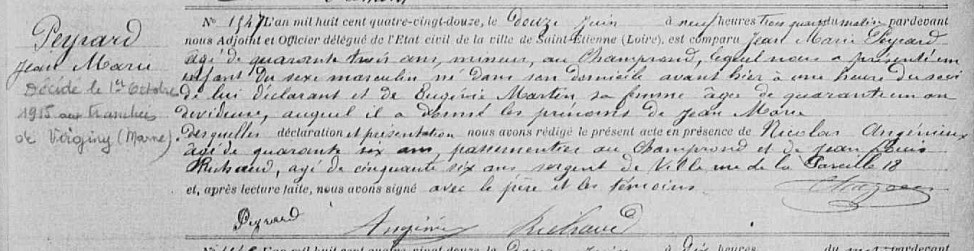 Peyrard
Jean Marie
Décédé le 1er Octobre
1915 aux tranchées
de Virginy (Marne).
N° 1147 L'an mil huit cent quatre-vingt-douze, le douze Juin à neuf heures trois quarts du matin pardevant
nous Adjoint et Officier délégué de l'Etat civil de la ville de Saint-Etienne (Loire), est comparu Jean Marie Peyrard
âgé de quarante trois ans, mineur, au Champrond, lequel nous a présenté un
enfant du sexe masculin né dans son domicile avant hier à une heure du soir
de lui déclarant et de Eugénie Martin sa femme âgée de quarante un an
dévideuse, auquel il a donné les prénoms de Jean Marie
Desquelles déclaration et présentation nous avons rédigé le présent acte en présence de Nicolas Angénieux
âgé de quarante six ans, passementier au Champrond et de Jean Louis
Richaud, agé de cinquante six ans sergent de Ville rue de la Pareille 18
et, après lecture faite, nous avons signé avec le père et les témoins.
Peyrard Richaud
L'an mil huit cent quatre-vingt-douze, le heures du pardevant